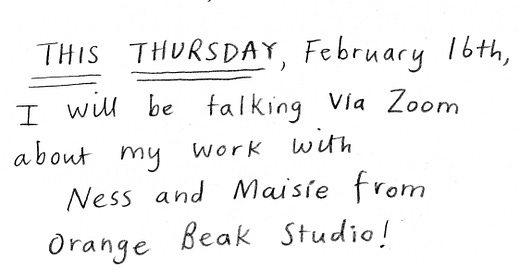 THIS THURSDAY, February 16th,
I will be talking via Zoom
about my work with
Ness and Maisie from
Orange Beak Studio!